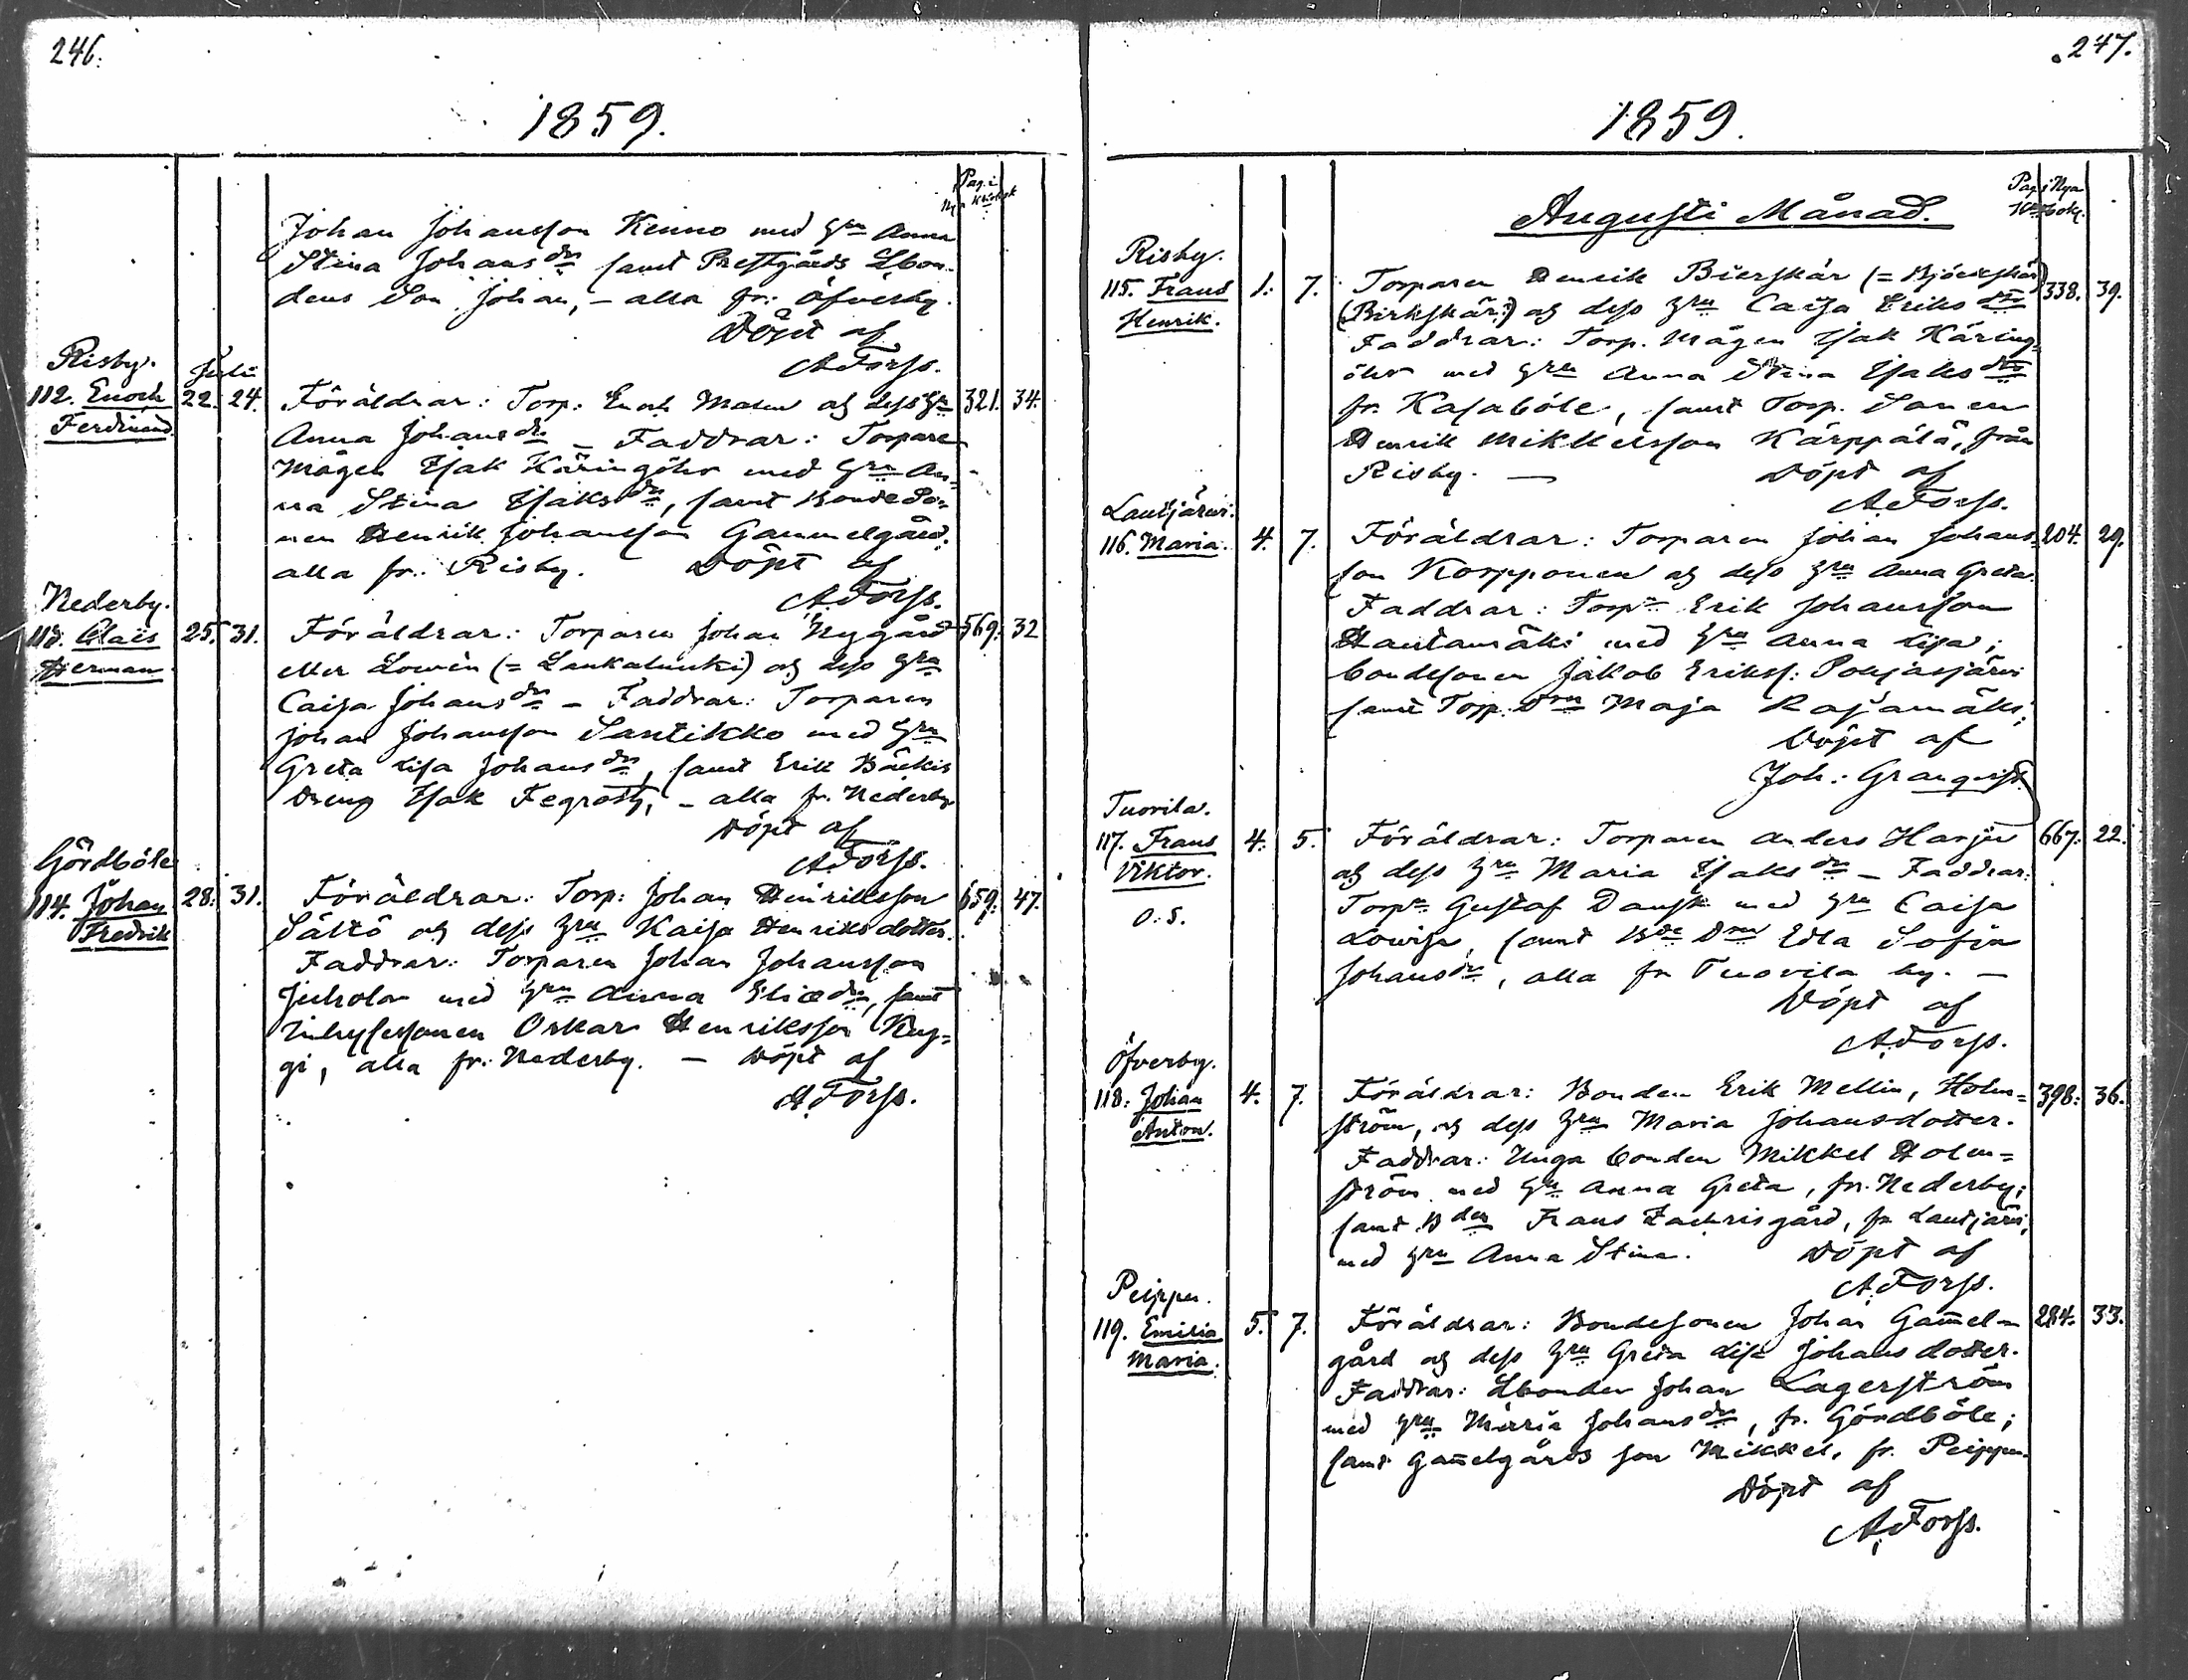 246.
1859.
Pag. i
Johan Johansson Kenno med Hru Anna
Stina Johansdr samt Prestgårds Lbon-
dens Son Johan, – alla fr: Öfverby.
Döpt af
A Forss.
Risby. Juli
112. Enoch 22. 24. Föräldrar: Torp: Enoch Malm och dess Hru 321. 34.
Ferdinand Anna Johansdr – Faddrar: Torpare
Mågen Isak Käringöhr med Hru An-
na Stina Isaksdr, samt Bonde So-
nen Henrik Johansson Gammelgård,
alla fr. Risby. Döpt af
A. Forss.
Nederby.
113. Claës 25. 31. Föräldrar: Torparen Johan Nygård 569. 32
Herman eller Lowen (= Laukaluuki) och dess Hru
Caisa Johansdr – Faddrar: Torparen
Johan Johansson Santikko med Hru
Greta Lisa Johansdr, samt Erik Bäckis
dreng Isak Fegrost, – alla fr. Nederby
Döpt af
A Forss.
Gördböle
114. Johan 28. 31. Föräldrar: Torp: Johan Henriksson 659. 47.
Fredrik Sältö och dess Hru Kaisa Henriksdotter.
Faddrar: Torparen Johan Johansson
Juhola med Hru Anna Eliædr, samt
Inhysesonen Oskar Henriksson Kug=
gi, alla fr: Nederby. – Döpt af
A. Forss.
247.
1859.
Pag. i Nya
Augusti Månad.
Risby.
115. Frans 1. 7. Torparen Henrik Bierskär (= Björkskär) 338. 39.
Henrik. (Birkskär:) och dess Hru Caisa Eriksdtr
Faddrar: Torp. Mågen Isak Käring=
öhr med Hru Anna Stina Isaksdtr
fr. Kasaböle, samt Torp. Sonen
Henrik Mikkelsson Kärppälä, från
Risby. – Döpt af
A. Forss.
Lautjärwi.
116. Maria. 4. 7. Föräldrar: Torparen Johan Johans- 204. 29.
son Korpponen och dess Hru Anna Greta.
Faddrar: Torpn Erik Johansson
Hautamäki med Hru Anna Lisa;
bondesonen Jakob Eriks: Pohjasjärwi
samt Torp. Dru Maja Rajamäki;
Döpt af
Joh: Granqvist
Tuorila.
117. Frans 4. 5. Föräldrar: Torparen Anders Harju 667. 22.
Viktor. och dess Hru Maria Isaksdr – Faddrar:
O. S. Torpn Gustaf Dansk med Hru Caisa
Lowisa, samt Bde Dru Edla Sofia
Johansdr, alla fr Tuovila by. –
Döpt af
A. Forss.
Öfverby.
118: Johan 4. 7. Föräldrar: Bonden Erik Mellin, Holm= 398. 36.
Anton. ström, och dess Hru Maria Johansdotter.
Faddrar: Unga bonden Mikkel Holm=
ström med Hru Anna Greta, fr. Nederby;
samt Bden Frans Zachrisgård, fr Lautjärwi,
med Hru Anna Stina. Döpt af
A. Forss.
Peippu.
119. Emilia 5. 7. Föräldrar: Bondesonen Johan Gam̄el- 284. 33.
Maria. gård och dess Hru Greta Lisa Johansdotter.
Faddrar: Lbonden Johan Lagerström
med Hru Maria Johansdr, fr. Gördböle;
samt Gam̄elgårds son Mikkel, fr. Peippu.
Döpt af
A. Forss.